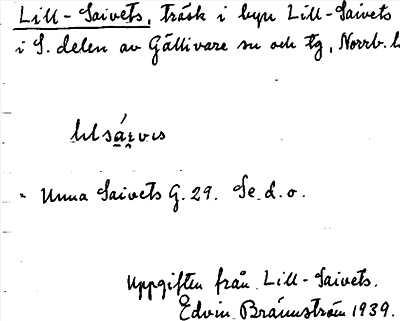 Lill-Saivets, träsk i byn Lill-Saivets
i S. delen av Gällivare sn och tg, Norrb. l
- Unna Saivets G. 29. Se d. o.
Uppgiften från Lill-Saivets.
Edvin Brännström 1939.